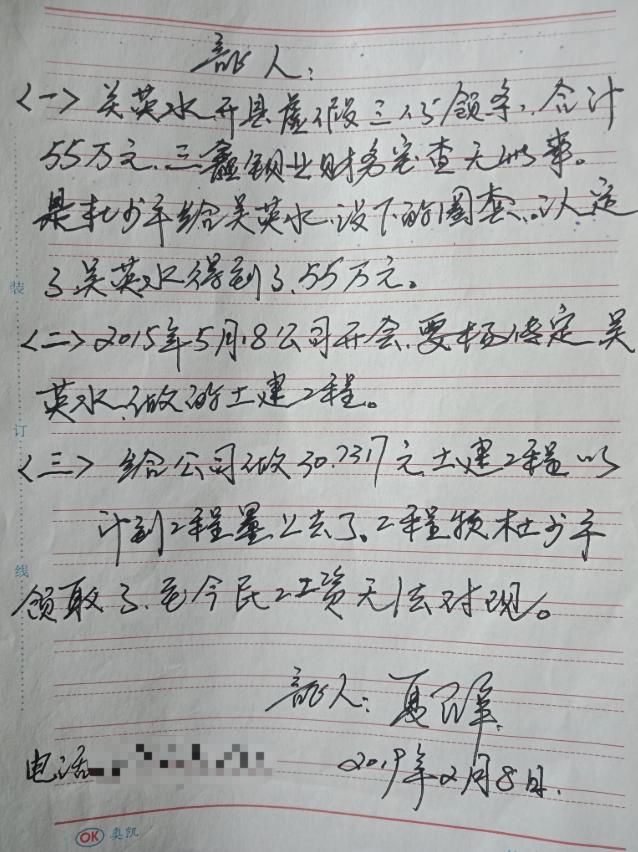 证人：
<一> 吴英水开具虚假三份领条，合计
55万元，三鑫钢业财务室查无此事。
是杜少平给吴英水设下的圈套，认定
了吴英水得到了55万元。
<二> 2015年5月18公司开会，要求核定吴
英水做的土建工程。
<三> 给公司做30.7317元土建工程以
计到工程量上去了，工程领杜少平
领取了，至今民工工资无法对现。
证人：夏
电话
2019年2月8日.
装
订
线
OK 奥凯